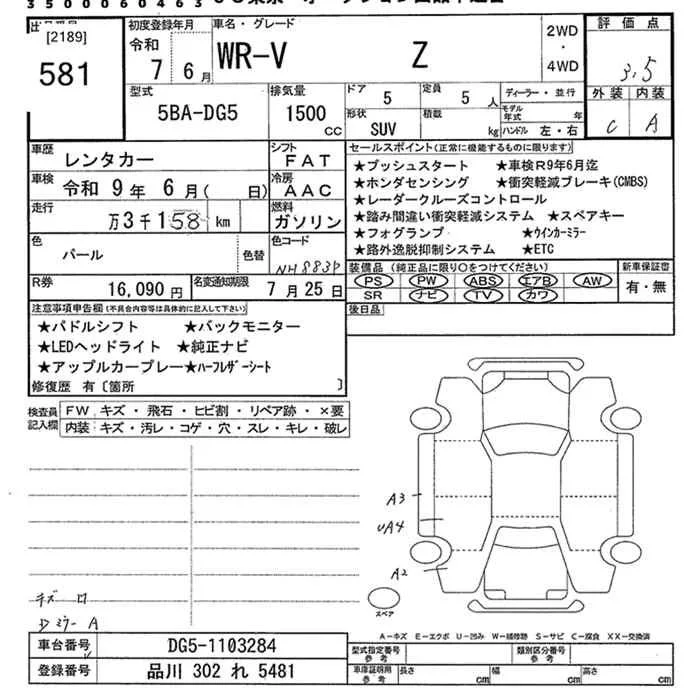 3500060463
[2189]
581
初度登録年月
令和
7 6月
車名・グレード
WR-V Z
2WD
・
4WD
評価点
3.5
外装 内装
C A
型式
5BA-DG5
排気量
1500
cc
ドア
5
定員
5人
形状
SUV
積載
kg
ディーラー・並行
モデル年式 年
ハンドル 左・右
車歴
レンタカー
シフト
FAT
車検 令和 9年 6月( 日)
冷房
AAC
走行
万3千158km
燃料
ガソリン
色
パール
色替
色コード
NH883P
R券
16,090円
名変通知期限
7月25日
セールスポイント(正常に機能するものに限ります)
★プッシュスタート ★車検R9年6月迄
★ホンダセンシング ★衝突軽減ブレーキ(CMBS)
★レーダークルーズコントロール
★踏み間違い衝突軽減システム ★スペアキー
★フォグランプ ★ウインカーミラー
★路外逸脱抑制システム ★ETC
装備品(純正品に限り○をつけてください)
PS PW ABS エアB AW
SR ナビ TV カワ
新車保証書
有・無
後日品
注意事項申告欄(不具合内容等は具体的に記入して下さい)
★パドルシフト ★バックモニター
★LEDヘッドライト ★純正ナビ
★アップルカープレー★ハーフレザーシート
修復歴 有〔箇所 〕
検査員記入欄
FW キズ・飛石・ヒビ割・リペア跡・×要
内装:キズ・汚レ・コゲ・穴・スレ・キレ・破レ
A3
UA4
A2
スペア
D ミラー A
A-キズ E-エクボ U-凹み W-補修跡 S-サビ C-腐食 XX-交換済
車台番号
DG5-1103284
登録番号
品川 302 れ 5481
型式指定番号
参考
類別区分番号
参考
車庫証明用
参考
長さ cm 幅 cm 高さ cm